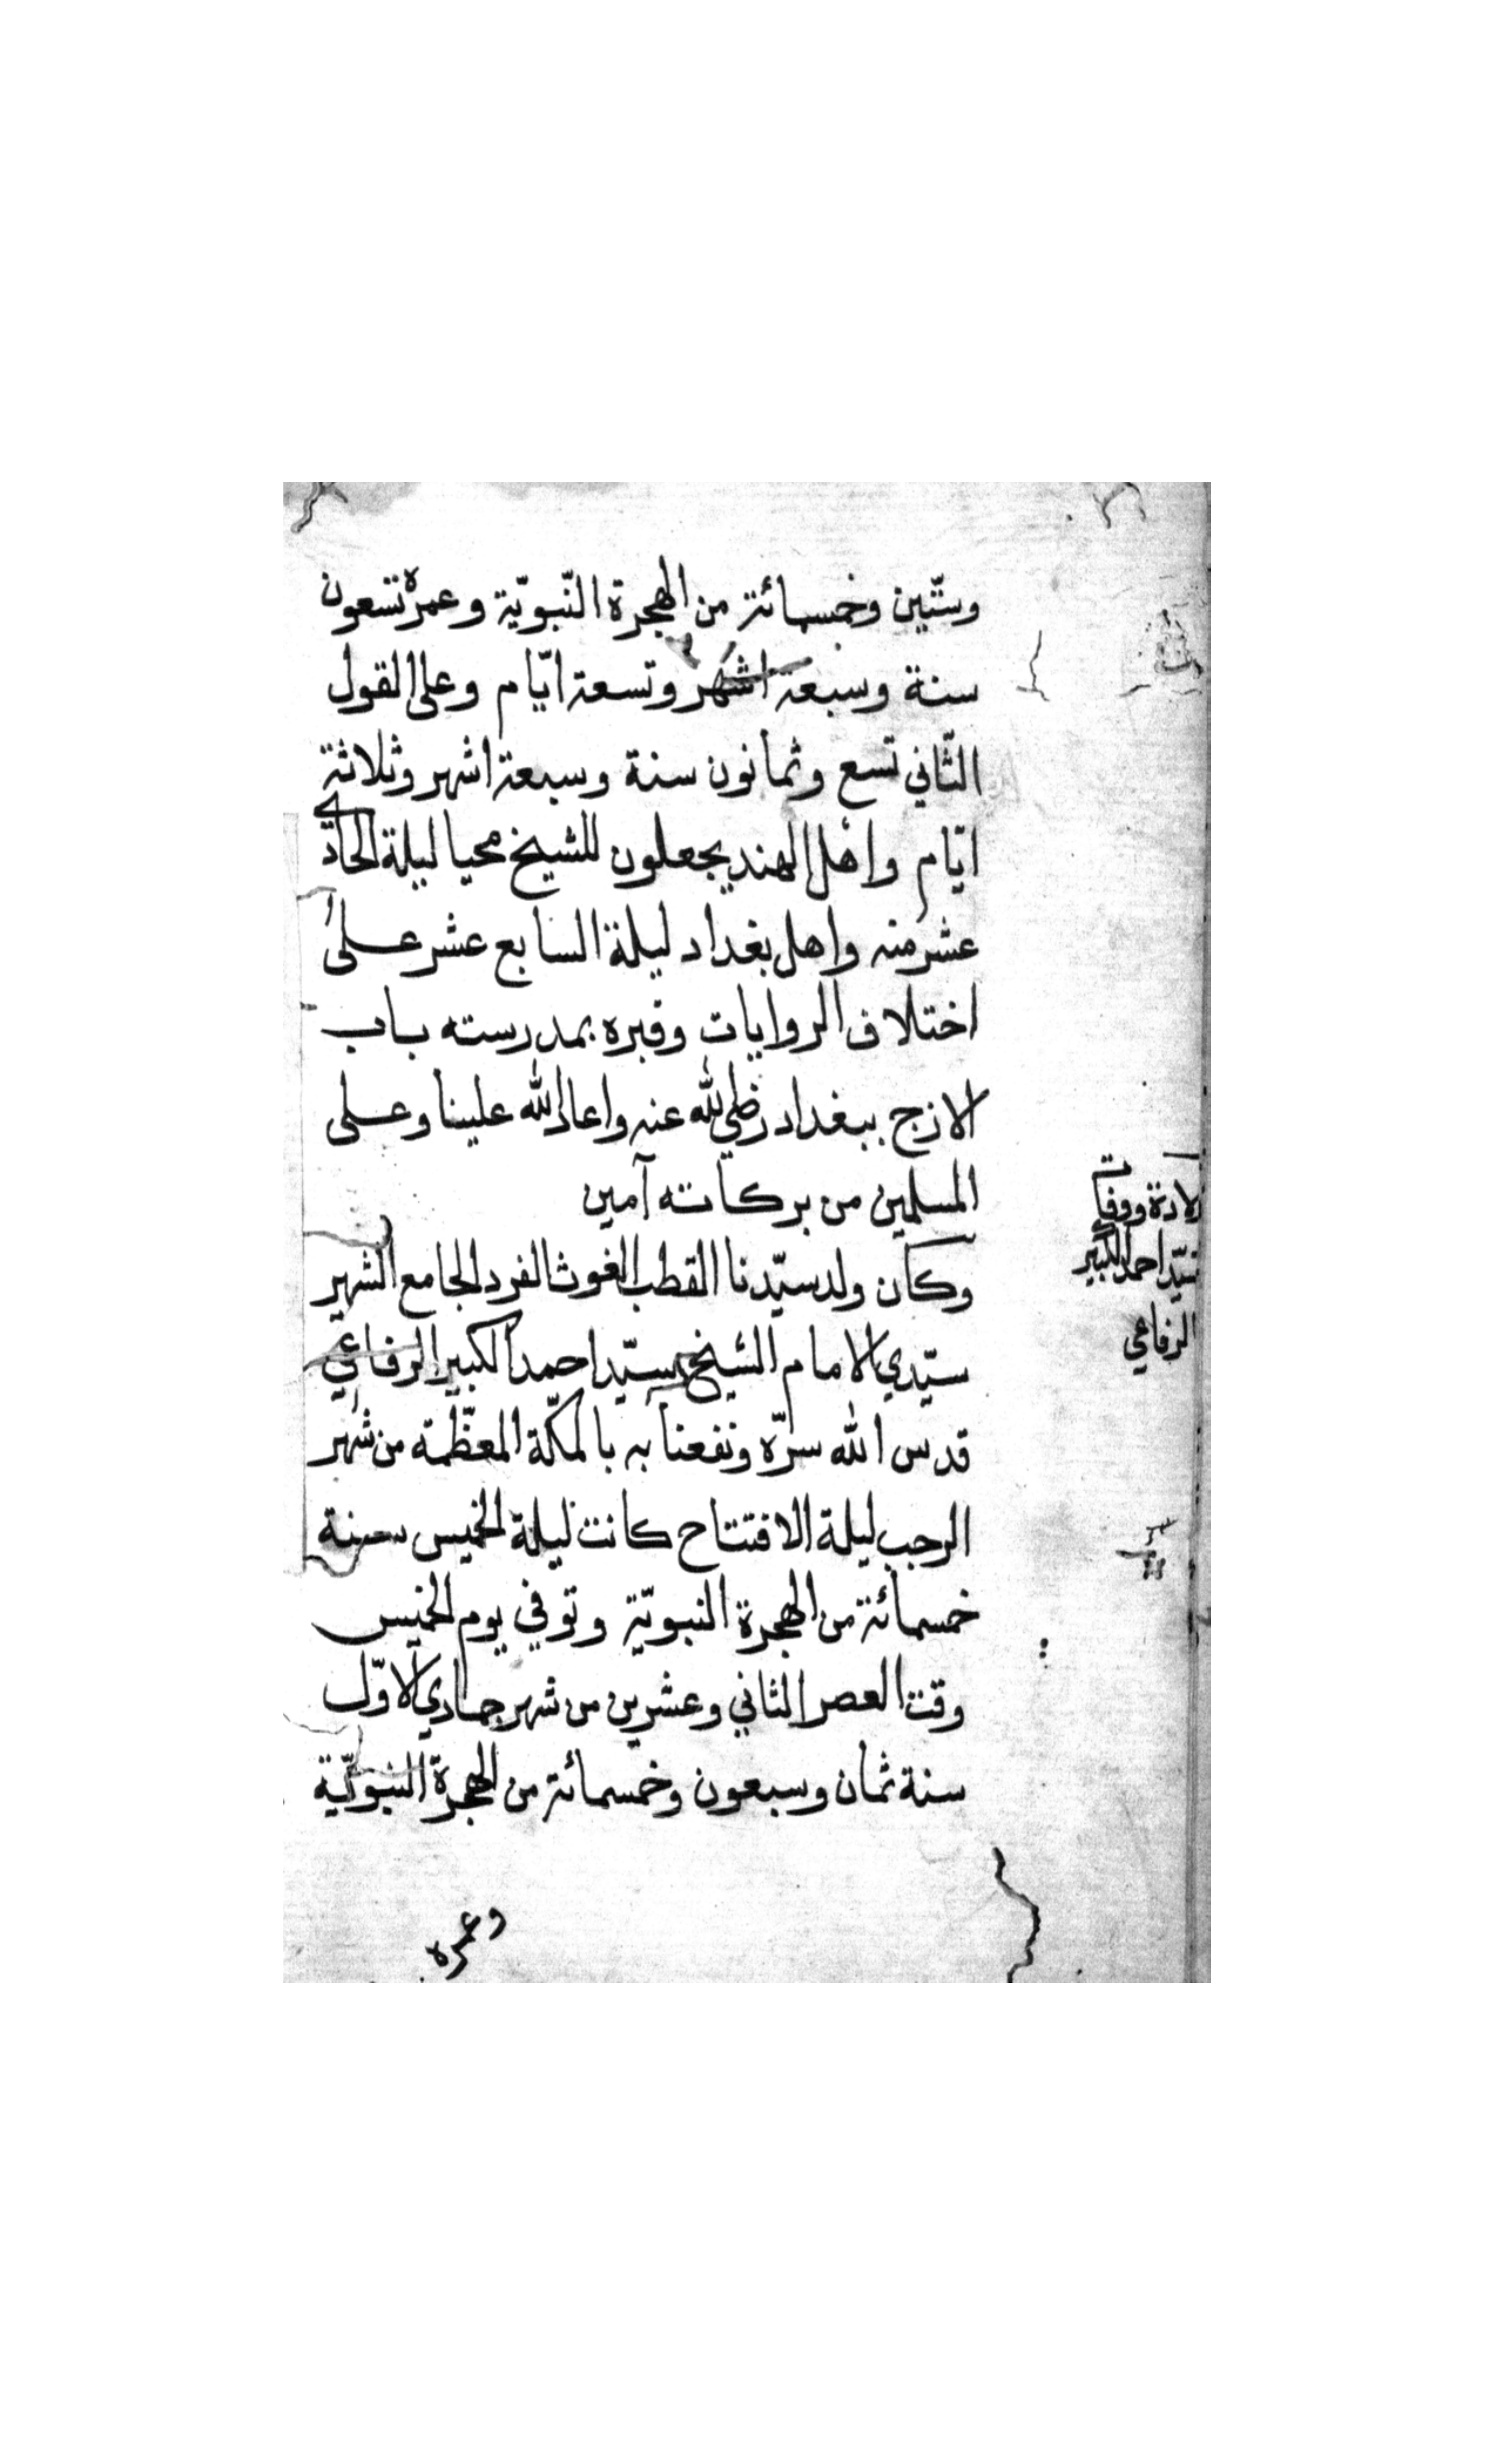 وستّين وخمسمائة من الهجرة النّبويّة وعمره تسعون
سنة وسبعة اشهر وتسعة ايّام وعلى القول
الثّاني تسع وثمانون سنة وسبعة اشهر وثلاثة
ايّام واهل الهند يجعلون للشيخ محيا ليلة الحادي
عشر منه واهل بغداد ليلة السابع عشر على
اختلاف الروايات وقبره بمدرسته بباب
الازج ببغداد رضي الله عنه واعاد الله علينا وعلى
المسلمين من بركاته آمين
وكان ولد سيّدنا القطب الغوث الفرد الجامع الشهير
سيّدي الامام الشيخ سيّد احمد الكبير الرفاعي
قدس الله سرّه ونفعنا به بالمكّة المعظّمة من شهر
الرجب ليلة الافتتاح كانت ليلة الخميس سنة
خمسمائة من الهجرة النبويّة وتوفي يوم الخميس
وقت العصر الثاني وعشرين من شهر جمادي الاوّل
سنة ثمان وسبعون وخمسمائة من الهجرة النبويّة
وعمره
لادة ووفات
سيّد احمد الكبير
الرفاعي